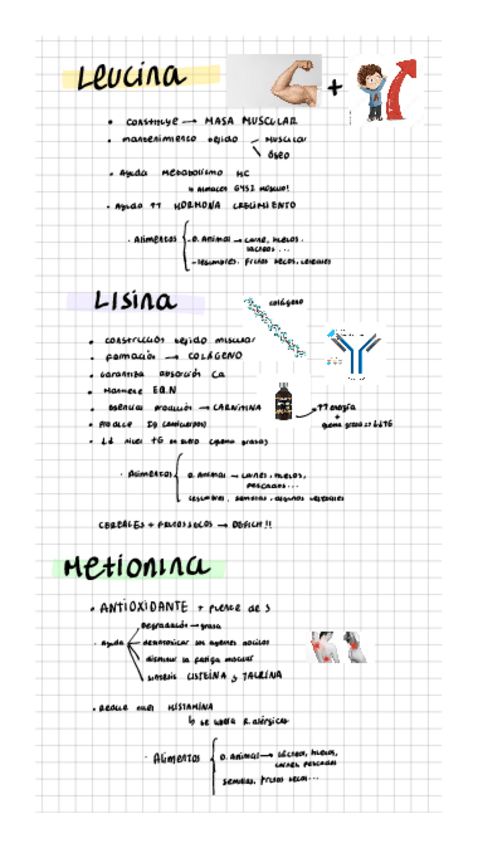 Leucina
+
• CONSTITUYE → MASA MUSCULAR
• mantenimiento tejido – MUSCULAR
\ ÓSEO
• Ayuda Metabolismo HC
↳ Almacén GYSZ MÚSCULO!
• Ayuda ↑↑ HORMONA CRECIMIENTO
· Alimentos { - O. Animal → carne, huevos,
lácteos...
- legumbres, frutos secos, cereales
Lisina
colágeno
• construcción tejido muscular
• formación → COLÁGENO
• Garantiza absorción Ca
• Mantiene EQ.N
• esencial producción → CARNITINA
↑↑ energía
+
quema grasa
• Produce Ig (anticuerpos)
• ↓↓ nivel TG en suero (quema grasa)
· Alimentos { O. Animal → carnes, huevos,
pescados...
legumbres, semillas, algunos vegetales
CEREALES + FRUTOS SECOS → DÉFICIT!!
Metionina
• ANTIOXIDANTE + fuente de S
· Ayuda
Degradación → grasa
desintoxicar los agentes nocivos
disminuir la fatiga muscular
síntesis CISTEÍNA y TAURINA
• Reduce nivel HISTAMINA
↳ se libera R. alérgicas
· Alimentos { O. Animal → lácteos, huevos,
carnes, pescados
semillas, frutos secos...